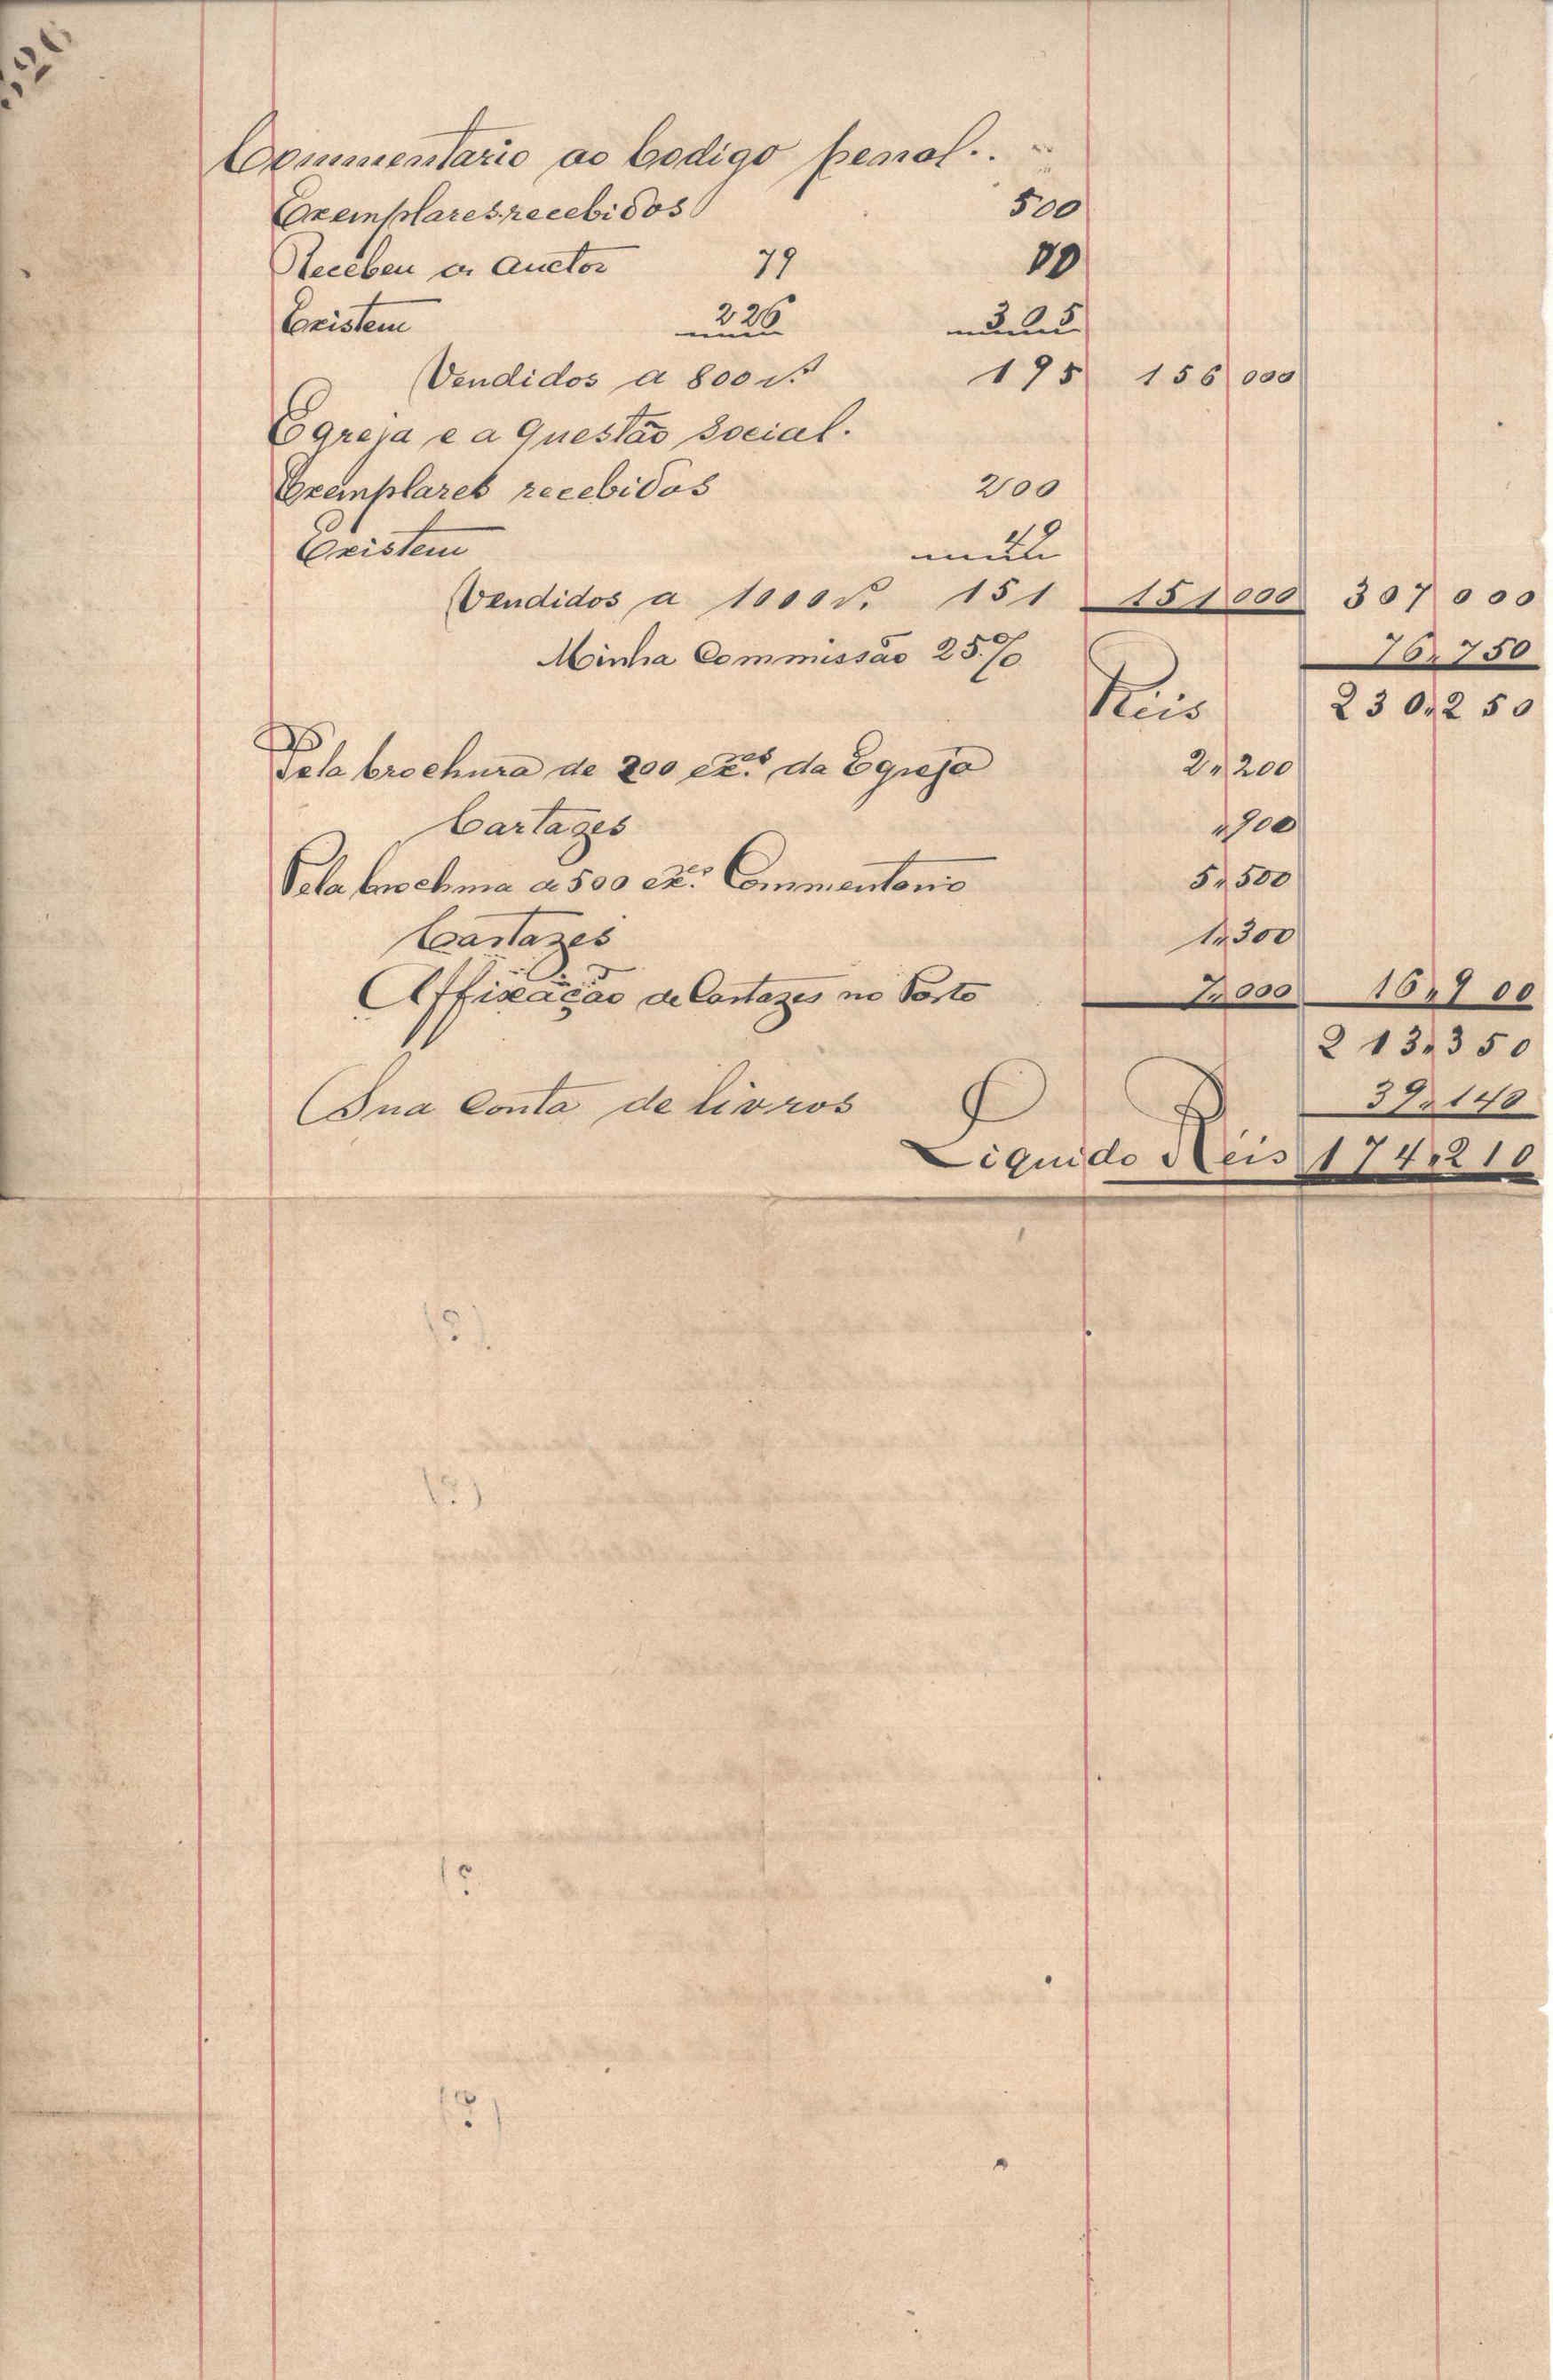 Commentario ao Codigo penal..
Exemplares recebidos 500
Recebeu o Auctor 79
Existem 226 305
Vendidos a 800 rs 195 156 000
Egreja e a Questão Social.
Exemplares recebidos 200
Existem 49
Vendidos a 1000 rs. 151 151 000 307 000
Minha Commissão 25.% 76,750
Reis 230,250
Pela brochura de 200 ex.es da Egreja 2,200
Cartazes ,900
Pela brochura a 500 ex.es Commentario 5,500
Cartazes 1,300
Affixação de Cartazes no Porto 7,000 16,900
213,350
Sua Conta de livros 39,140
Liquido Reis 174,210